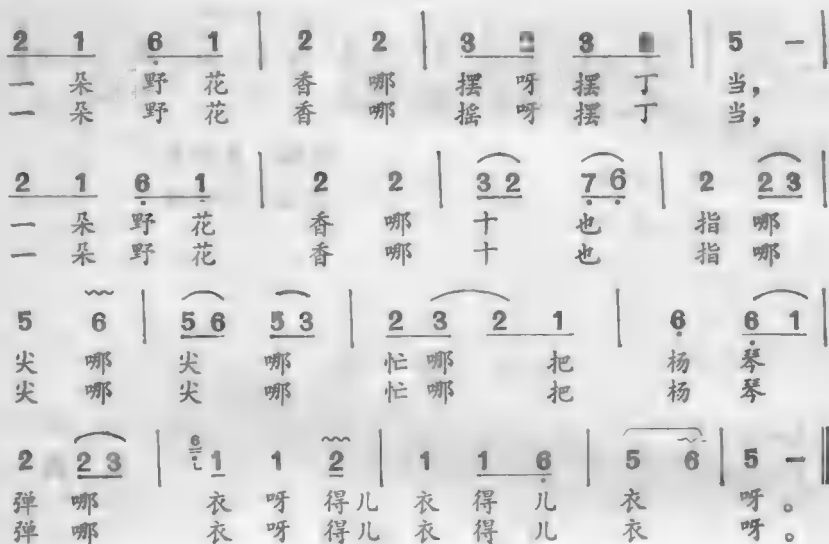 2 1 6 1 | 2 2 | 3 3 | 5 — |
一 朵 野 花 香 哪 摆 呀 摆 丁 当，
一 朵 野 花 香 哪 摇 呀 摆 丁 当，
2 1 6 1 | 2 2 | 3 2 7 6 | 2 2 3 |
一 朵 野 花 香 哪 十 也 指 哪
一 朵 野 花 香 哪 十 也 指 哪
5 6 | 5 6 5 3 | 2 3 2 1 | 6 6 1 |
尖 哪 尖 哪 忙 哪 把 杨 琴
尖 哪 尖 哪 忙 哪 把 杨 琴
2 2 3 | 6 1 1 2 | 1 1 6 | 5 6 | 5 — ‖
弹 哪 衣 呀 得儿 衣 得 儿 衣 呀。
弹 哪 衣 呀 得儿 衣 得 儿 衣 呀。